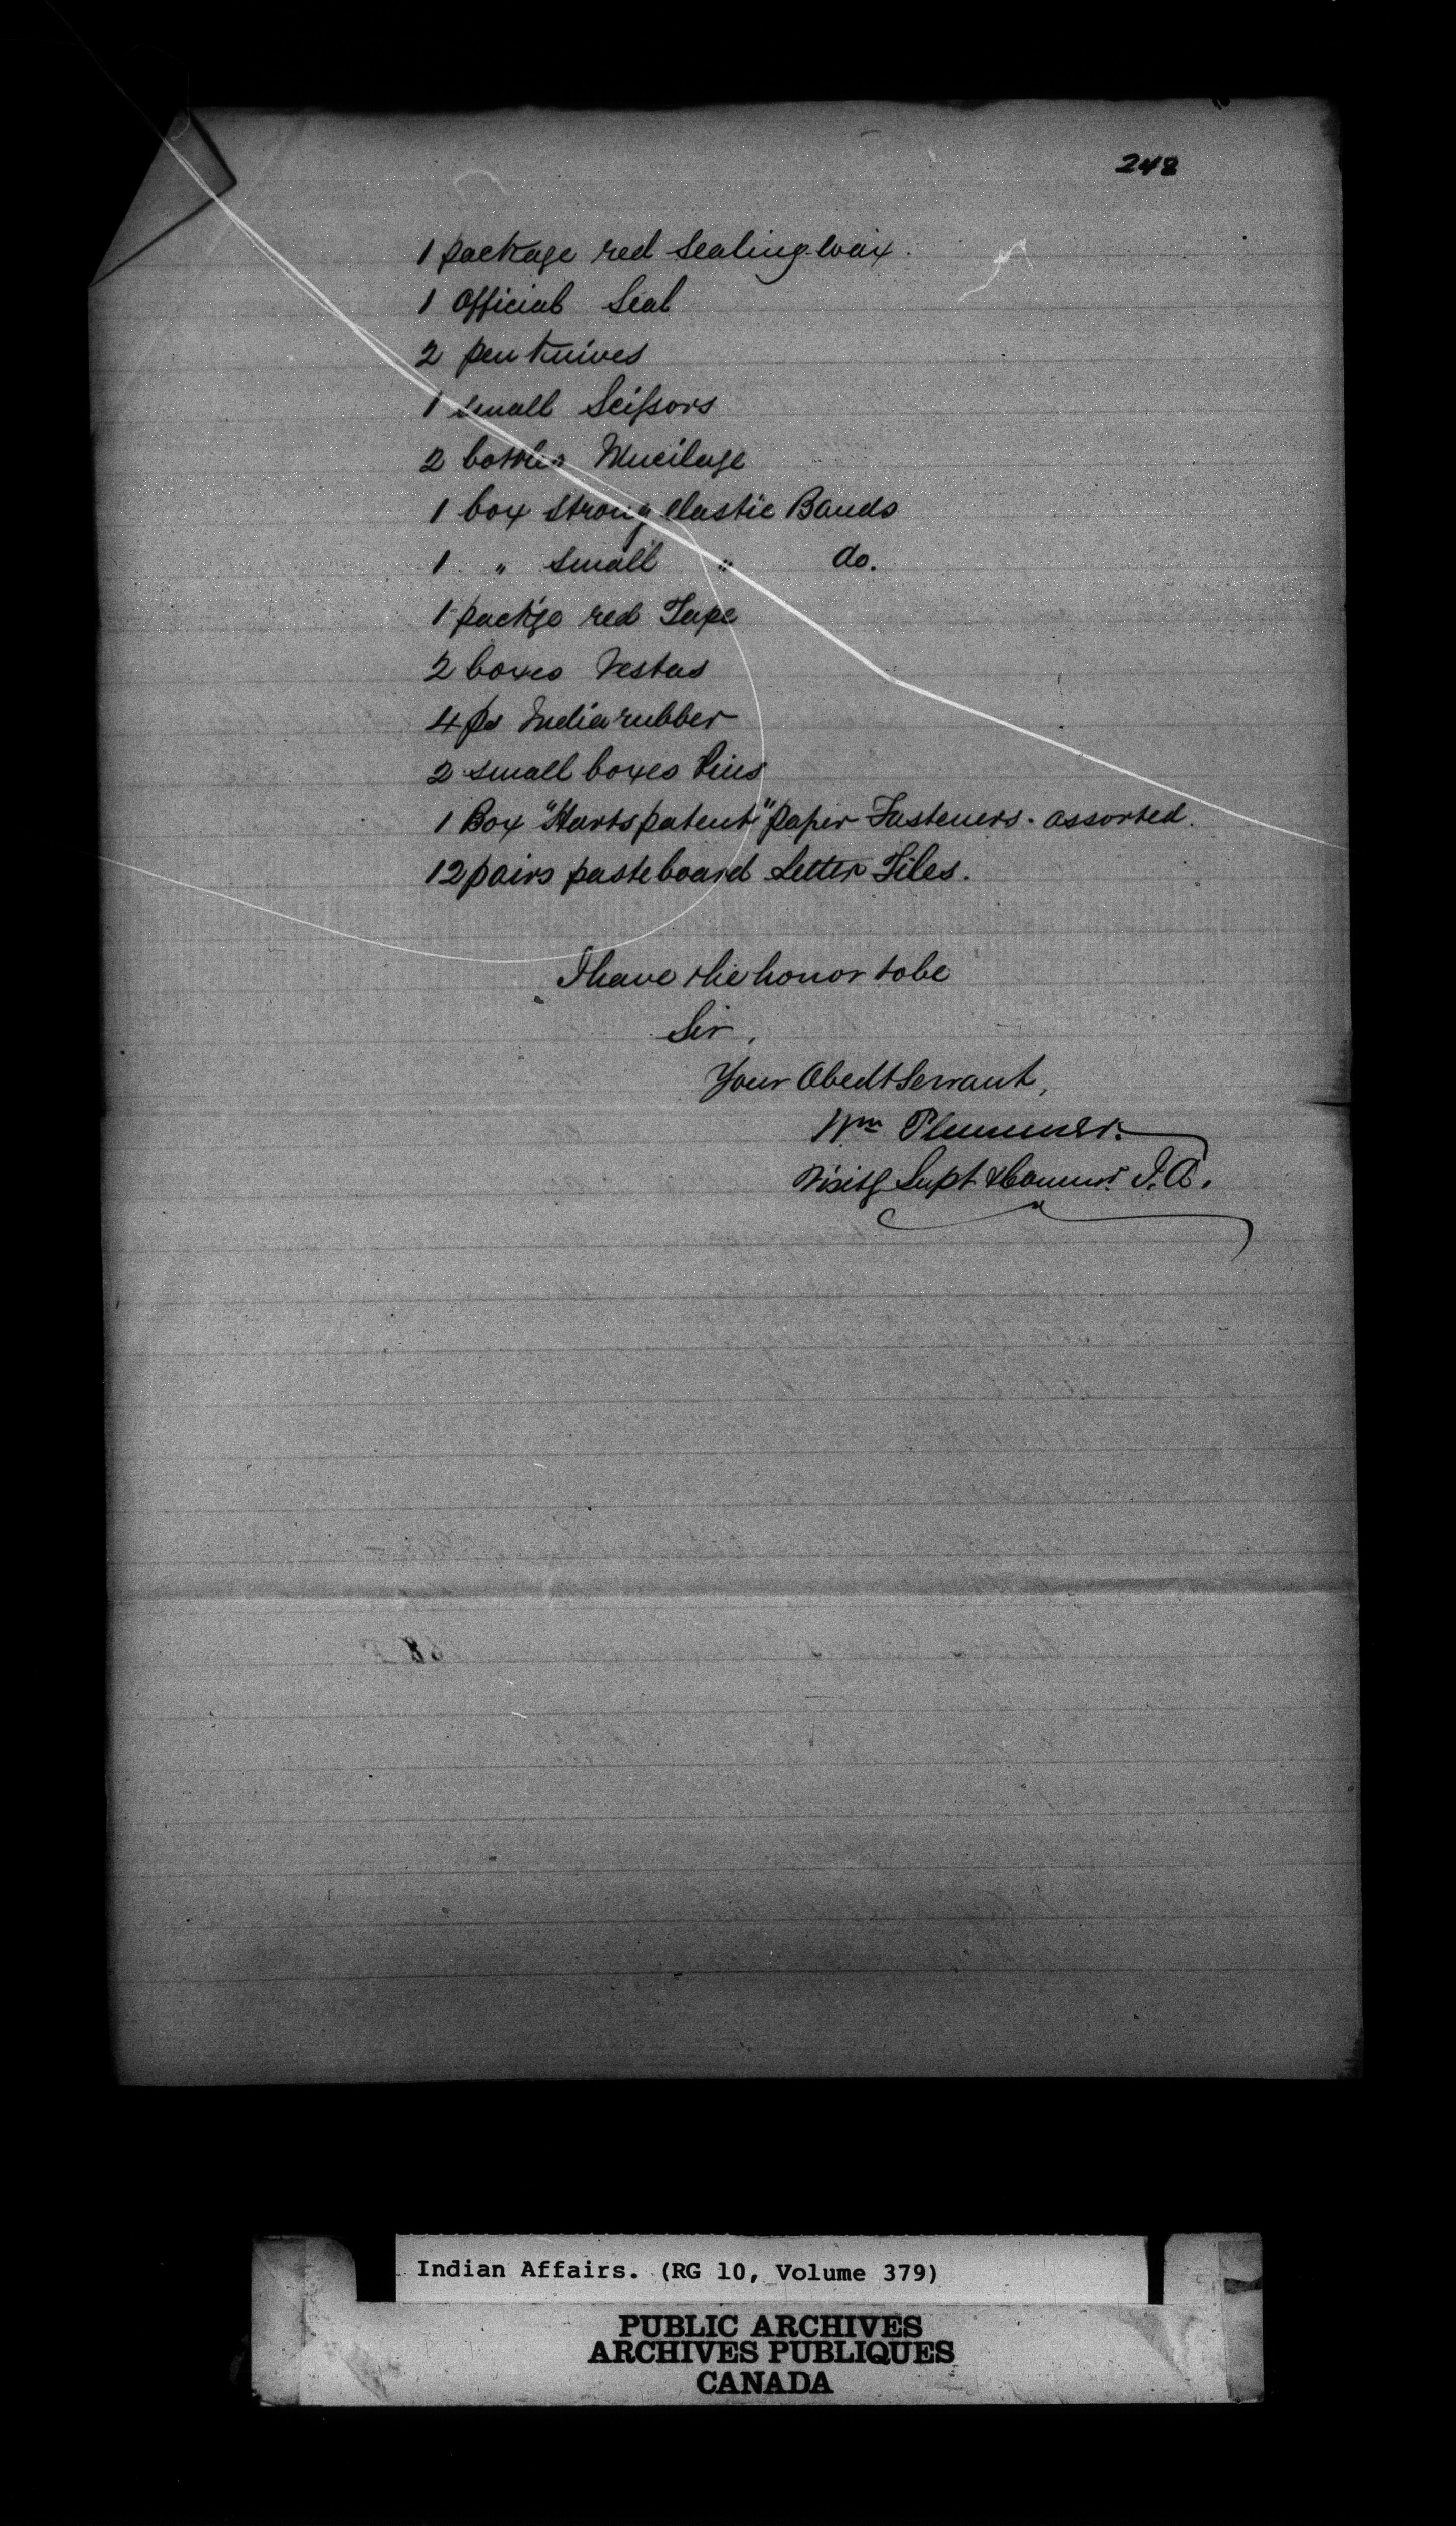 248
1 package red Sealing wax.
1 Official Seal
2 pen Knives
1 small Scissors
2 bottles Mucilage
1 box strong elastic Bands
1 " small " do.
1 pack'ge red Tape
2 boxes Vestas
4 ps India rubber
2 small boxes Pins
1 Box "Harts patent" paper Fasteners. assorted.
12 pairs pasteboard Letter Files.
I have the honor to be
Sir,
Your Obedt Servant,
Wm Plummer.
Visitg Supt & Commr. I.A.
Indian Affairs. (RG 10, Volume 379)
PUBLIC ARCHIVES
ARCHIVES PUBLIQUES
CANADA